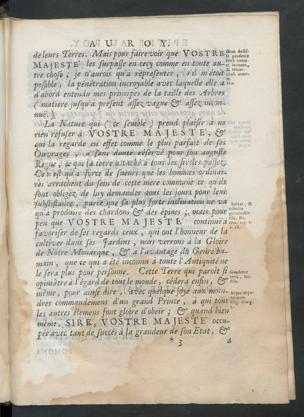 AU ROY.
de leurs Terres. Mais pour faire voir que VOSTRE
MAJESTÉ les surpasse en cecy comme en toute au-
tre chose, je n'aurois qu'à representer, s'il m'étoit
possible, la penétration incroyable avec laquelle elle a
d'abord entendu mes principes de la taille des Arbres
(matiere jusqu'à present assez vague & assez incon-
nuë.)
La Nature qui (ce semble) prend plaisir à ne
rien refuser à VOSTRE MAJESTÉ, &
qui la regarde en effet comme le plus parfait de ses
Ouvrages, a sans doute réservé pour son auguste
Regne, ce que la terre a caché à tous les siecles passez.
Ce n'est qu'à force de sueurs que les hommes ordinai-
res arrachent du sein de cette mere commune ce qu'ils
sont obligez de luy demander tous les jours pour leur
subsistance, parce que sa plus forte inclination ne va
qu'à produire des chardons & des épines; mais pour
peu que VOSTRE MAJESTÉ continuë à
favoriser de ses regards ceux, qui ont l'honneur de la
cultiver dans ses Jardins, nous verrons à la Gloire
de Nôtre Monarque, & à l'avantage du Genre hu-
main, que ce qui a été inconnu à toute l'Antiquité ne
le sera plus pour personne. Cette Terre qui paroît si
opiniâtre à l'égard de tout le monde, cédera enfin, &
même, pour ainsi dire, avec quelque joye aux moin-
dres commandemens d'un grand Prince, à qui tous
les autres élemens font gloire d'obeïr; & quand bien
même, SIRE, VOSTRE MAJESTÉ occu-
pée avec tant de succés à la grandeur de son Etat, &
* 3 a